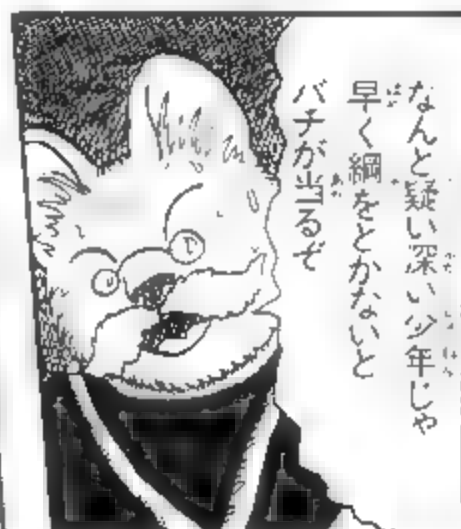 なんと疑い深い少年じゃ
早く綱をとかないと
バチが当るぞ